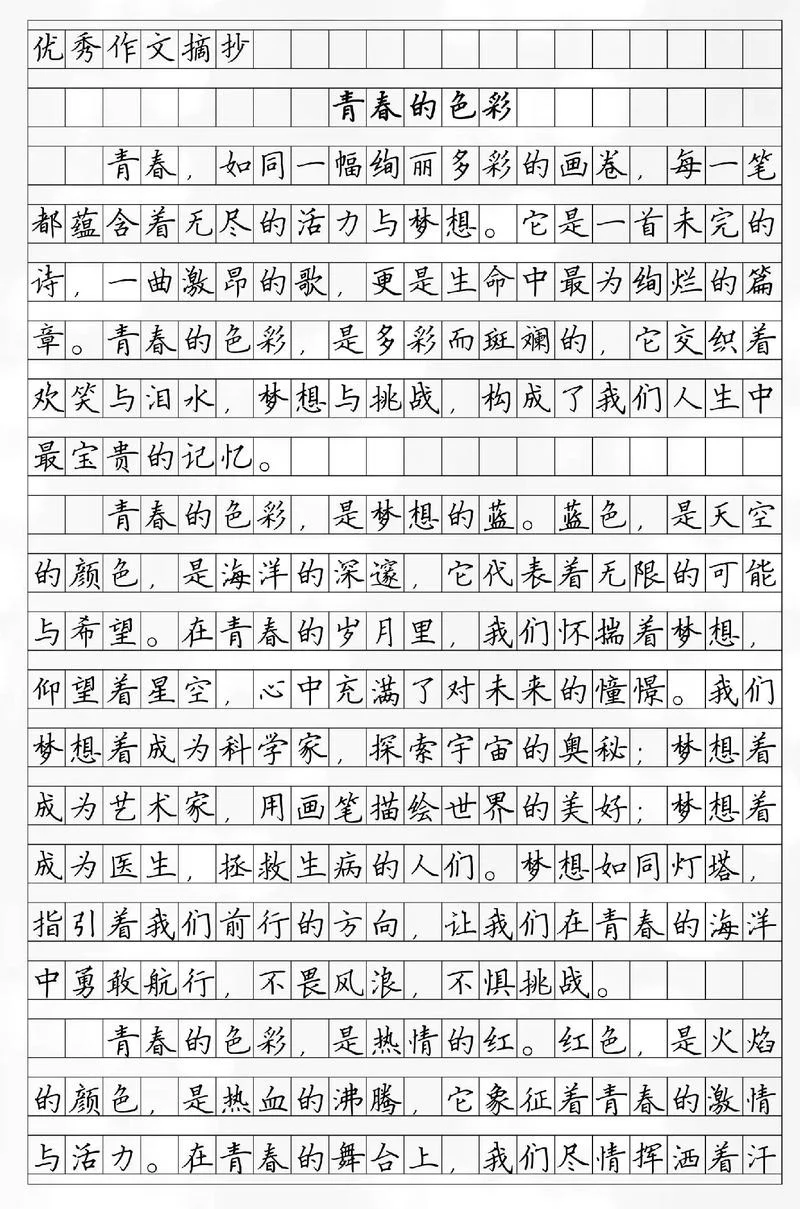 优秀作文摘抄
青春的色彩
青春，如同一幅绚丽多彩的画卷，每一笔
都蕴含着无尽的活力与梦想。它是一首未完的
诗，一曲激昂的歌，更是生命中最为绚烂的篇
章。青春的色彩，是多彩而斑斓的，它交织着
欢笑与泪水，梦想与挑战，构成了我们人生中
最宝贵的记忆。
青春的色彩，是梦想的蓝。蓝色，是天空
的颜色，是海洋的深邃，它代表着无限的可能
与希望。在青春的岁月里，我们怀揣着梦想，
仰望着星空，心中充满了对未来的憧憬。我们
梦想着成为科学家，探索宇宙的奥秘；梦想着
成为艺术家，用画笔描绘世界的美好；梦想着
成为医生，拯救生病的人们。梦想如同灯塔，
指引着我们前行的方向，让我们在青春的海洋
中勇敢航行，不畏风浪，不惧挑战。
青春的色彩，是热情的红。红色，是火焰
的颜色，是热血的沸腾，它象征着青春的激情
与活力。在青春的舞台上，我们尽情挥洒着汗